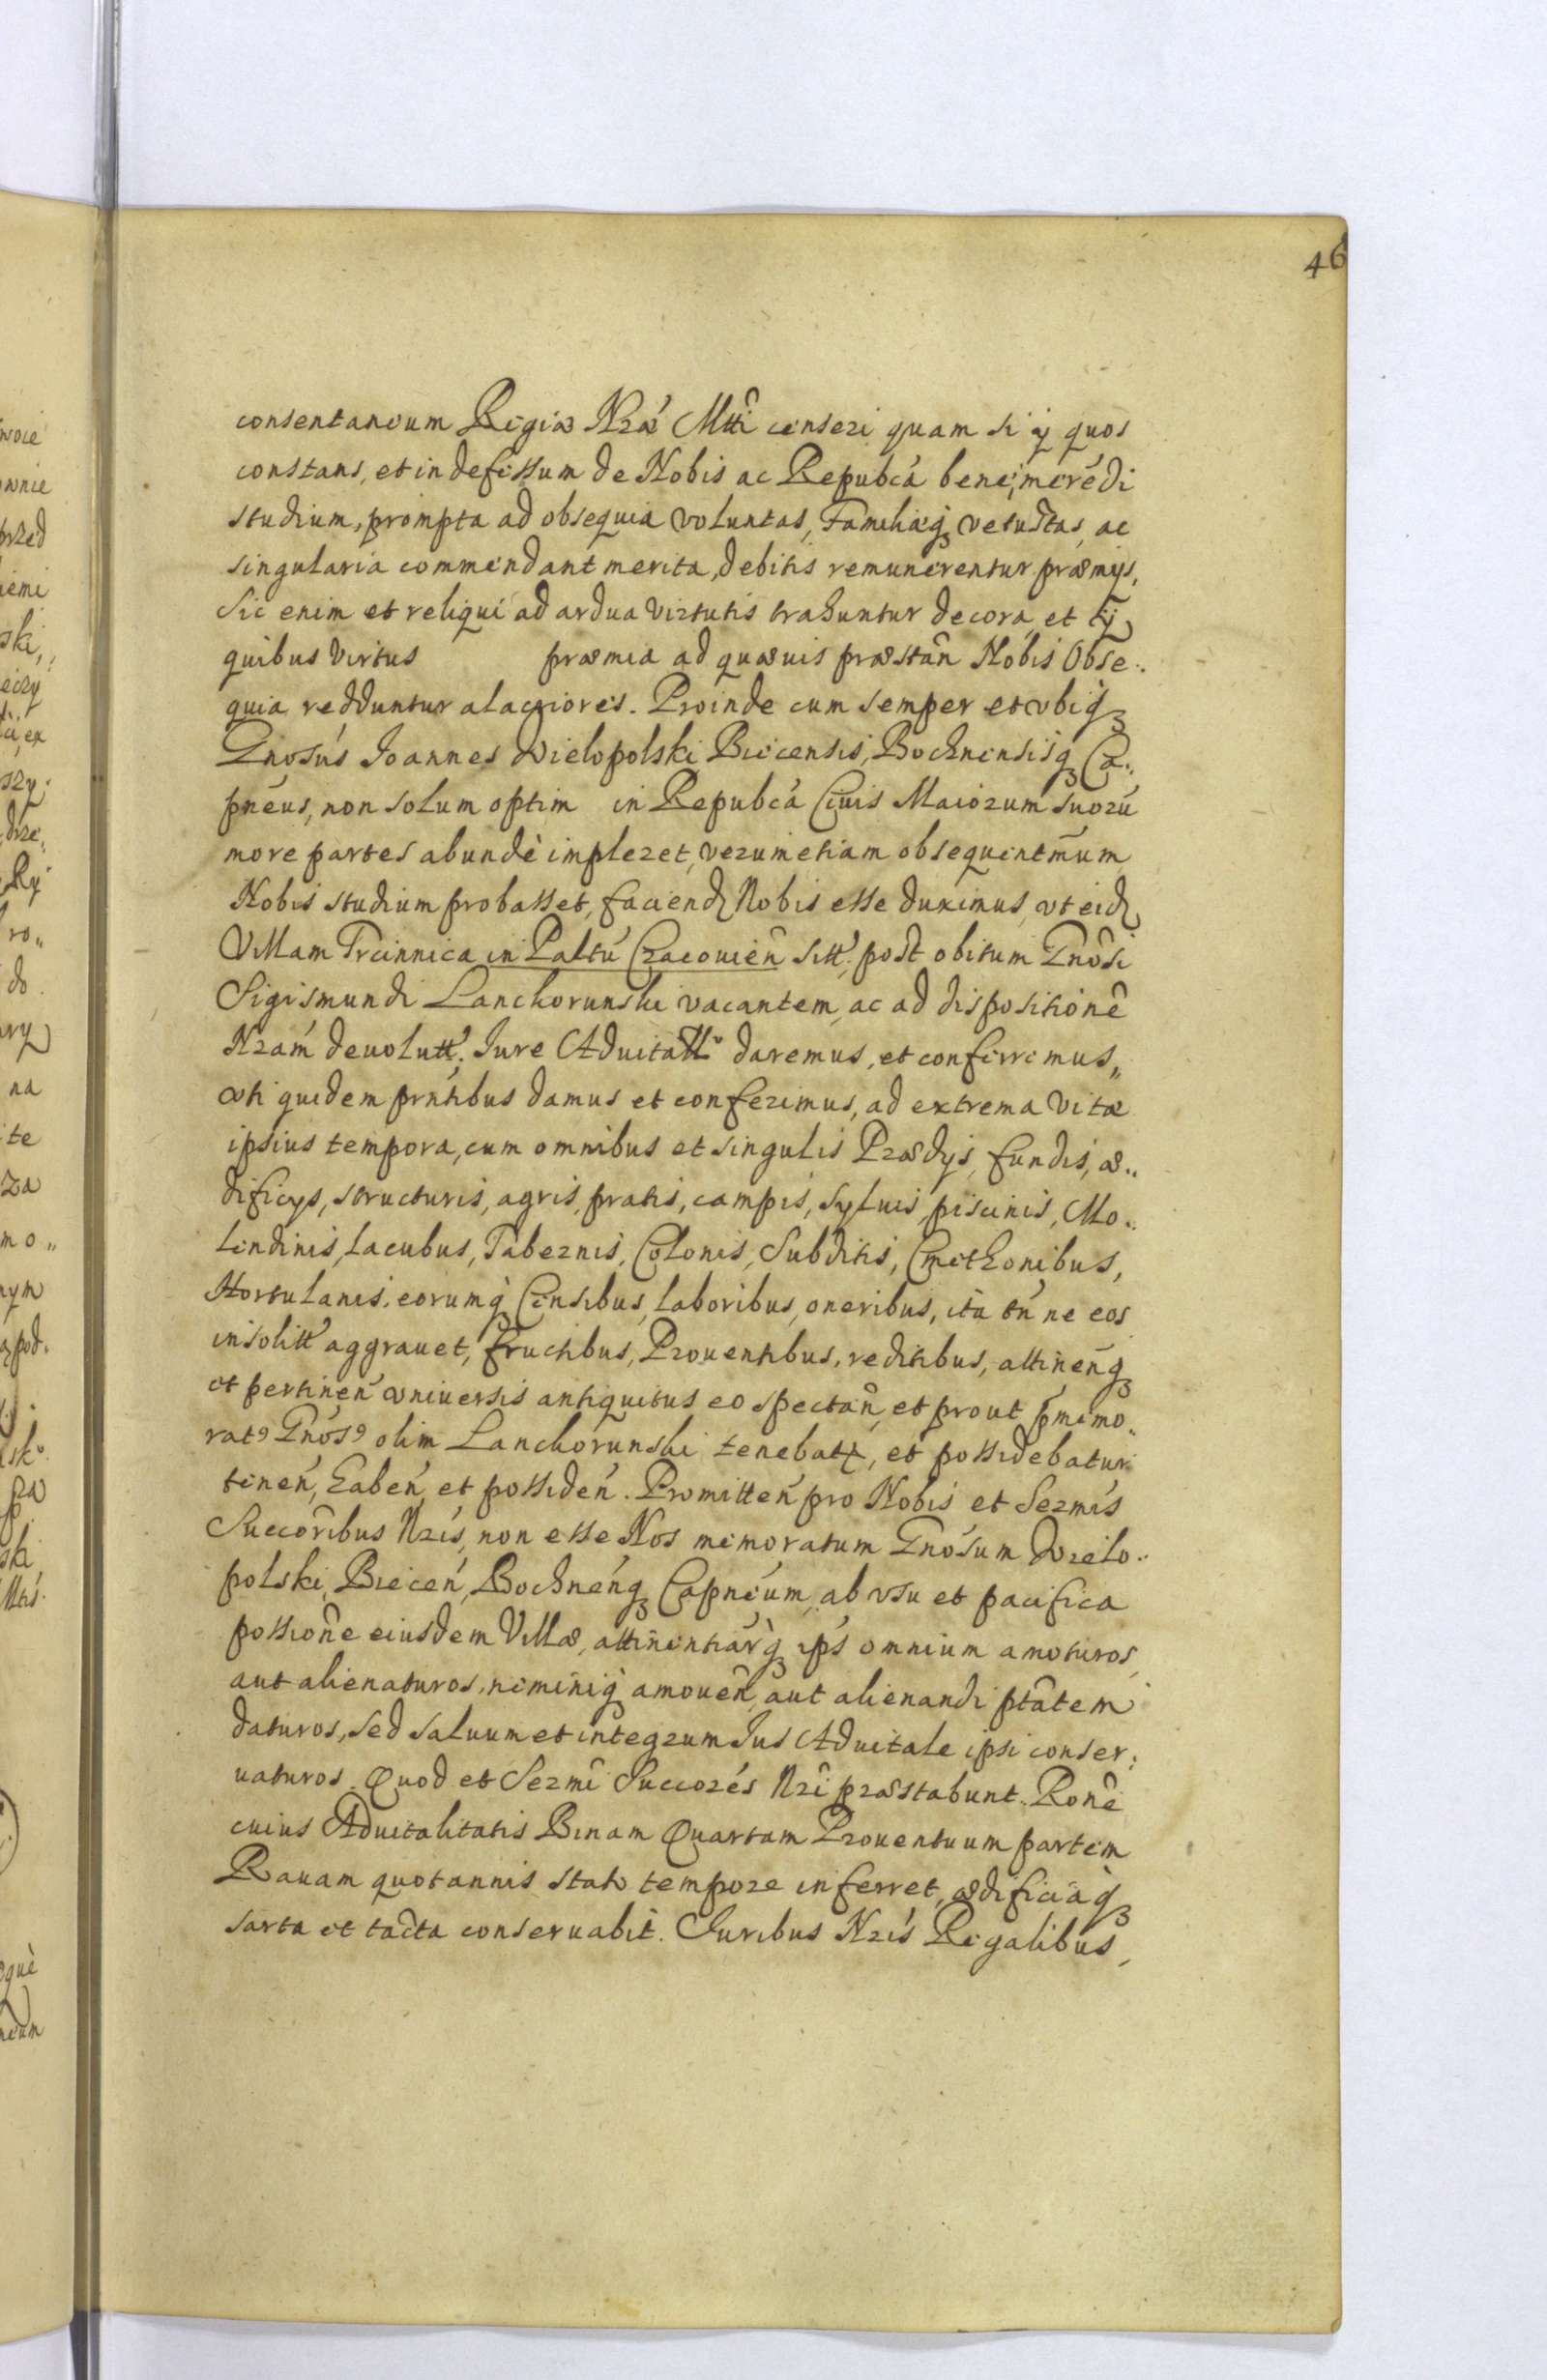 46
consentaneum Regiæ Nræ Mtti censeri quam si ÿ quos
constans, et indefessum de Nobis ac Repubcá bene merédi
studium, prompta ad obsequia voluntas, Familiæq3 vetustas, ac
singularia commendant merita, debitis remunerentur præmÿs,
Sic enim et reliqui ad ardua virtutis trahuntur decora, et ÿ
quibus Virtus præmia ad quæuis præstañ Nobis Obse..
quia redduntur alacriores. Proinde cum semper et vbiq3
Gnosús Joannes Wielopolski Biecensis, Bochnensisq3 Ca..
pnéus, non solum optim in Repubcá Ciuis Maiorum suorú
more partes abundè impleret, verumetiam obsequentm̃um
Nobis studium probasset, faciend Nobis esse duximus, vt eid
Villam Trcinnica in Paltú Cracouień sitt. post obitum Gnosi
Sigismundi Lanckorunski vacantem, ac ad dispositionê
Nrám deuolutt. Jure Aduitatto daremus, et conferremus,,
vti quidem prntibus damus et conferimus, ad extrema vitæ
ipsius tempora, cum omnibus et singulis Prædÿs, fundis, æ..
dificÿs, structuris, agris, pratis, campis, syluis, piscinis, Mo..
lendinis, lacubus, Tabernis, Colonis, Subditis, Cmethonibus,
Hortulanis, eorumq3 Censibus, laboribus, oneribus, ità tń ne eos
insolitt aggrauet, fructibus, Prouentibus, reditibus, attineñq3
et pertineń vniuersis antiquitus eo spectań, et prout pmemo,,
rat9 Gnós9 olim Lanckorunski tenebatr, et possidebatur
tineń, habeń, et possideń. Promitteń pro Nobis et Sermís
Succoribus Nrís, non esse Nos memoratum Gnosum Wielo..
polski, Biecen, Bochnéńq3 Capnéum, ab vsu et pacifica
possione eiusdem Villæ, attinentiarq3 ips omnium amoturos,
aut alienaturos, neminiq3 amouen, aut alienandi ptâtem
daturos, sed saluum et integrum Jus Aduitale ipsi conser:
uaturos. Quod et Sermi Succorés Nri præstabunt. Ronê
cuius Aduitalitatis Binam Quartam Prouentuum partem
Rauam quotannis stato tempore inferret, ædificiaq3
sarta et tacta conseruabit. Juribus Nrís Regalibus,